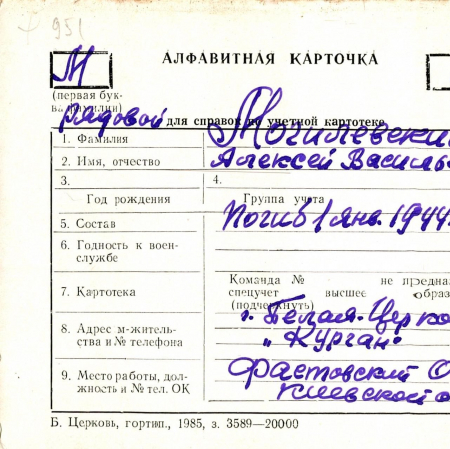 951
АЛФАВИТНАЯ КАРТОЧКА
М
(первая бук-
ва фамилии)
рядовой
для справок по учетной картотеке
1. Фамилия Могилевски
2. Имя, отчество Алексей Василь
3. 4.
Год рождения Группа учета
5. Состав Погиб 1 янв. 1944
6. Годность к воен-
службе
Команда № не предна
7. Картотека спецучет высшее образ
(подчеркнуть)
8. Адрес м-житель-
ства и № телефона
г. Белая-Церко
"Курган"
9. Место работы, дол-
жность и № тел. ОК
Фастовский О
Киевской о
Б. Церковь, гортип., 1985, з. 3589—20000